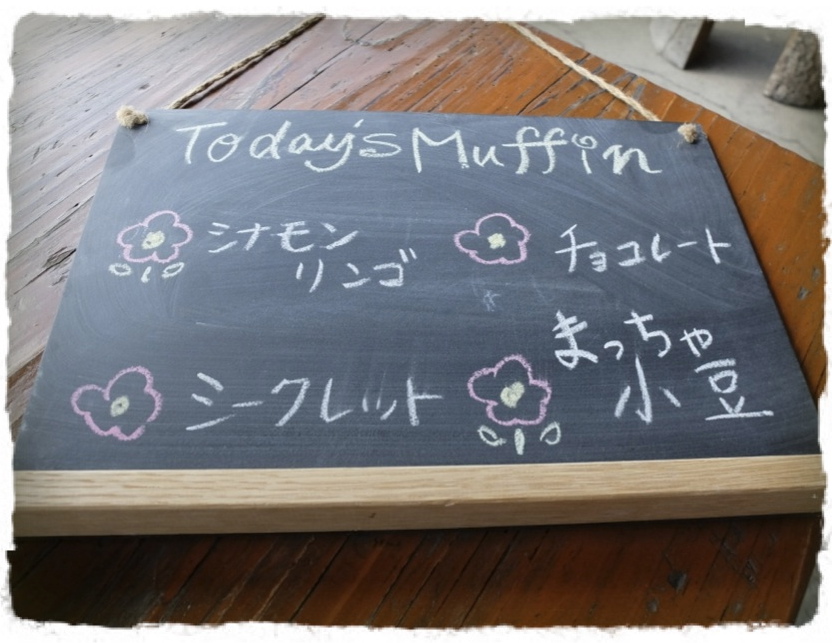 Today's Muffin
シナモン
リンゴ
チョコレート
シークレット
まっちゃ
小豆